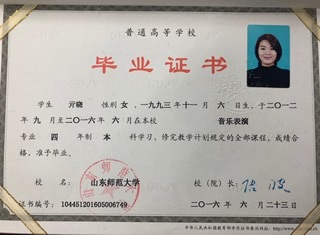 普通高等学校
毕业证书
学生 亓晓 性别 女，一九九三年十一月 六 日生，于二〇一二
年 九 月至二〇一六年 六 月在本校 音乐表演
专业 四 年制 本 科学习，修完教学计划规定的全部课程，成绩合
格，准予毕业。
校 名： 山东师范大学 校（院）长：
证书编号： 104451201605006749 二〇一六 年 六 月二十三日